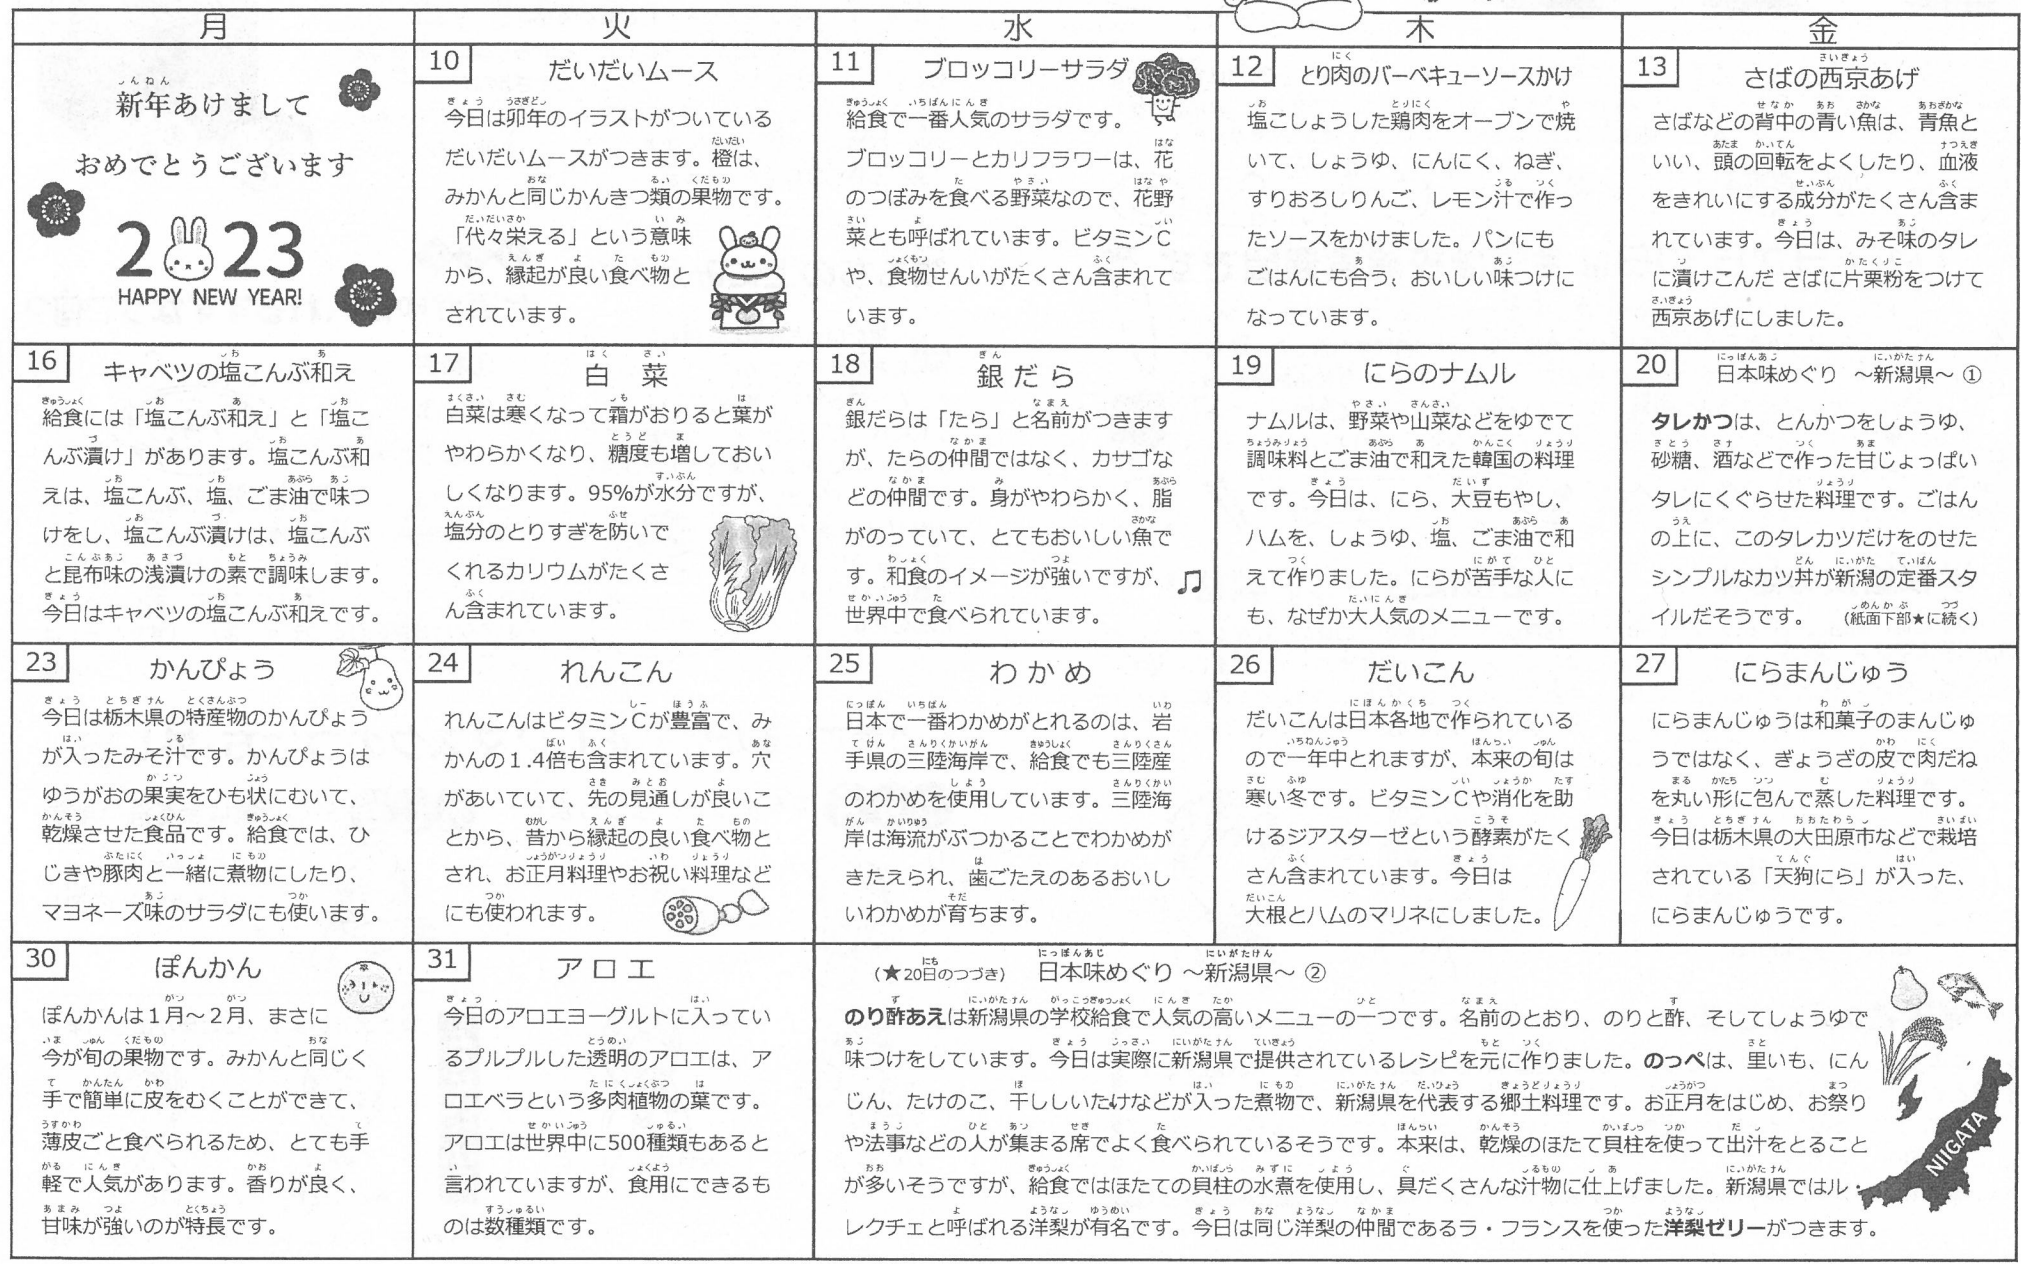 月 火 水 木 金
新年あけまして
おめでとうございます
2023
HAPPY NEW YEAR!
10 だいだいムース
今日は卯年のイラストがついている
だいだいムースがつきます。橙は、
みかんと同じかんきつ類の果物です。
「代々栄える」という意味
から、縁起が良い食べ物と
されています。
11 ブロッコリーサラダ
給食で一番人気のサラダです。
ブロッコリーとカリフラワーは、花
のつぼみを食べる野菜なので、花野
菜とも呼ばれています。ビタミンC
や、食物せんいがたくさん含まれて
います。
12 とり肉のバーベキューソースかけ
塩こしょうした鶏肉をオーブンで焼
いて、しょうゆ、にんにく、ねぎ、
すりおろしりんご、レモン汁で作っ
たソースをかけました。パンにも
ごはんにも合う、おいしい味つけに
なっています。
13 さばの西京あげ
さばなどの背中の青い魚は、青魚と
いい、頭の回転をよくしたり、血液
をきれいにする成分がたくさん含ま
れています。今日は、みそ味のタレ
に漬けこんだ さばに片栗粉をつけて
西京あげにしました。
16 キャベツの塩こんぶ和え
給食には「塩こんぶ和え」と「塩こ
んぶ漬け」があります。塩こんぶ和
えは、塩こんぶ、塩、ごま油で味つ
けをし、塩こんぶ漬けは、塩こんぶ
と昆布味の浅漬けの素で調味します。
今日はキャベツの塩こんぶ和えです。
17 白菜
白菜は寒くなって霜がおりると葉が
やわらかくなり、糖度も増しておい
しくなります。95%が水分ですが、
塩分のとりすぎを防いで
くれるカリウムがたくさ
ん含まれています。
18 銀だら
銀だらは「たら」と名前がつきます
が、たらの仲間ではなく、カサゴな
どの仲間です。身がやわらかく、脂
がのっていて、とてもおいしい魚で
す。和食のイメージが強いですが、
世界中で食べられています。
19 にらのナムル
ナムルは、野菜や山菜などをゆでて
調味料とごま油で和えた韓国の料理
です。今日は、にら、大豆もやし、
ハムを、しょうゆ、塩、ごま油で和
えて作りました。にらが苦手な人に
も、なぜか大人気のメニューです。
20 日本味めぐり ～新潟県～ ①
タレかつは、とんかつをしょうゆ、
砂糖、酒などで作った甘じょっぱい
タレにくぐらせた料理です。ごはん
の上に、このタレカツだけをのせた
シンプルなカツ丼が新潟の定番スタ
イルだそうです。 (紙面下部★に続く)
23 かんぴょう
今日は栃木県の特産物のかんぴょう
が入ったみそ汁です。かんぴょうは
ゆうがおの果実をひも状にむいて、
乾燥させた食品です。給食では、ひ
じきや豚肉と一緒に煮物にしたり、
マヨネーズ味のサラダにも使います。
24 れんこん
れんこんはビタミンCが豊富で、み
かんの1.4倍も含まれています。穴
があいていて、先の見通しが良いこ
とから、昔から縁起の良い食べ物と
され、お正月料理やお祝い料理など
にも使われます。
25 わかめ
日本で一番わかめがとれるのは、岩
手県の三陸海岸で、給食でも三陸産
のわかめを使用しています。三陸海
岸は海流がぶつかることでわかめが
きたえられ、歯ごたえのあるおいし
いわかめが育ちます。
26 だいこん
だいこんは日本各地で作られている
ので一年中とれますが、本来の旬は
寒い冬です。ビタミンCや消化を助
けるジアスターゼという酵素がたく
さん含まれています。今日は
大根とハムのマリネにしました。
27 にらまんじゅう
にらまんじゅうは和菓子のまんじゅ
うではなく、ぎょうざの皮で肉だね
を丸い形に包んで蒸した料理です。
今日は栃木県の大田原市などで栽培
されている「天狗にら」が入った、
にらまんじゅうです。
30 ぽんかん
ぽんかんは1月～2月、まさに
今が旬の果物です。みかんと同じく
手で簡単に皮をむくことができて、
薄皮ごと食べられるため、とても手
軽で人気があります。香りが良く、
甘味が強いのが特長です。
31 アロエ
今日のアロエヨーグルトに入ってい
るプルプルした透明のアロエは、ア
ロエベラという多肉植物の葉です。
アロエは世界中に500種類もあると
言われていますが、食用にできるも
のは数種類です。
(★20日のつづき) 日本味めぐり ～新潟県～ ②
のり酢あえは新潟県の学校給食で人気の高いメニューの一つです。名前のとおり、のりと酢、そしてしょうゆで
味つけをしています。今日は実際に新潟県で提供されているレシピを元に作りました。のっぺは、里いも、にん
じん、たけのこ、干ししいたけなどが入った煮物で、新潟県を代表する郷土料理です。お正月をはじめ、お祭り
や法事などの人が集まる席でよく食べられているそうです。本来は、乾燥のほたて貝柱を使って出汁をとること
が多いそうですが、給食ではほたての貝柱の水煮を使用し、具だくさんな汁物に仕上げました。新潟県ではル・
レクチェと呼ばれる洋梨が有名です。今日は同じ洋梨の仲間であるラ・フランスを使った洋梨ゼリーがつきます。
NIIGATA